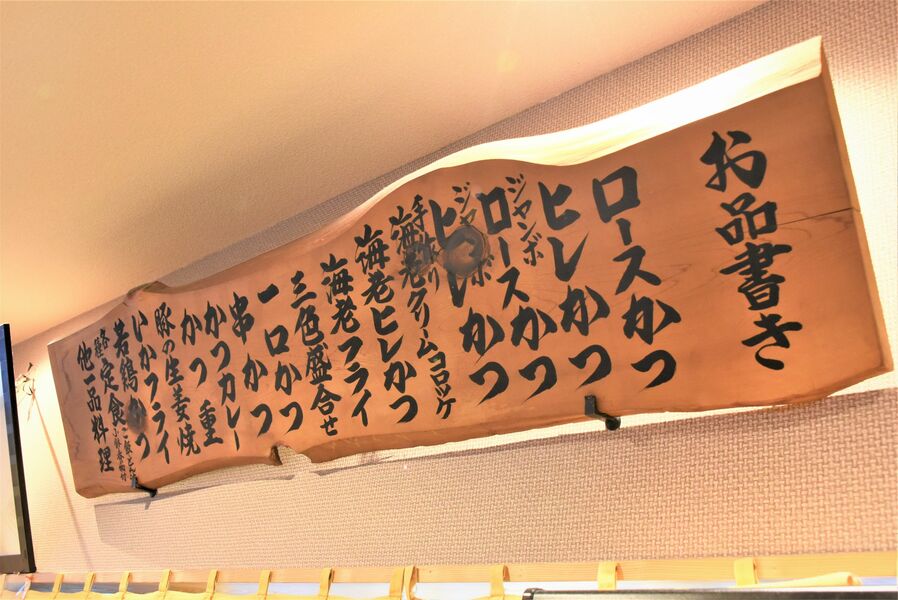 お品書き
ロースかつ
ヒレかつ
ジャンボ
ロースかつ
ジャンボ
ヒレかつ
手作り
海老クリームコロッケ
海老ヒレかつ
海老フライ
三色盛合せ
一口かつ
串かつ
かつカレー
かつ重
豚の生姜焼
いかフライ
若鶏かつ
各種定食
他一品料理